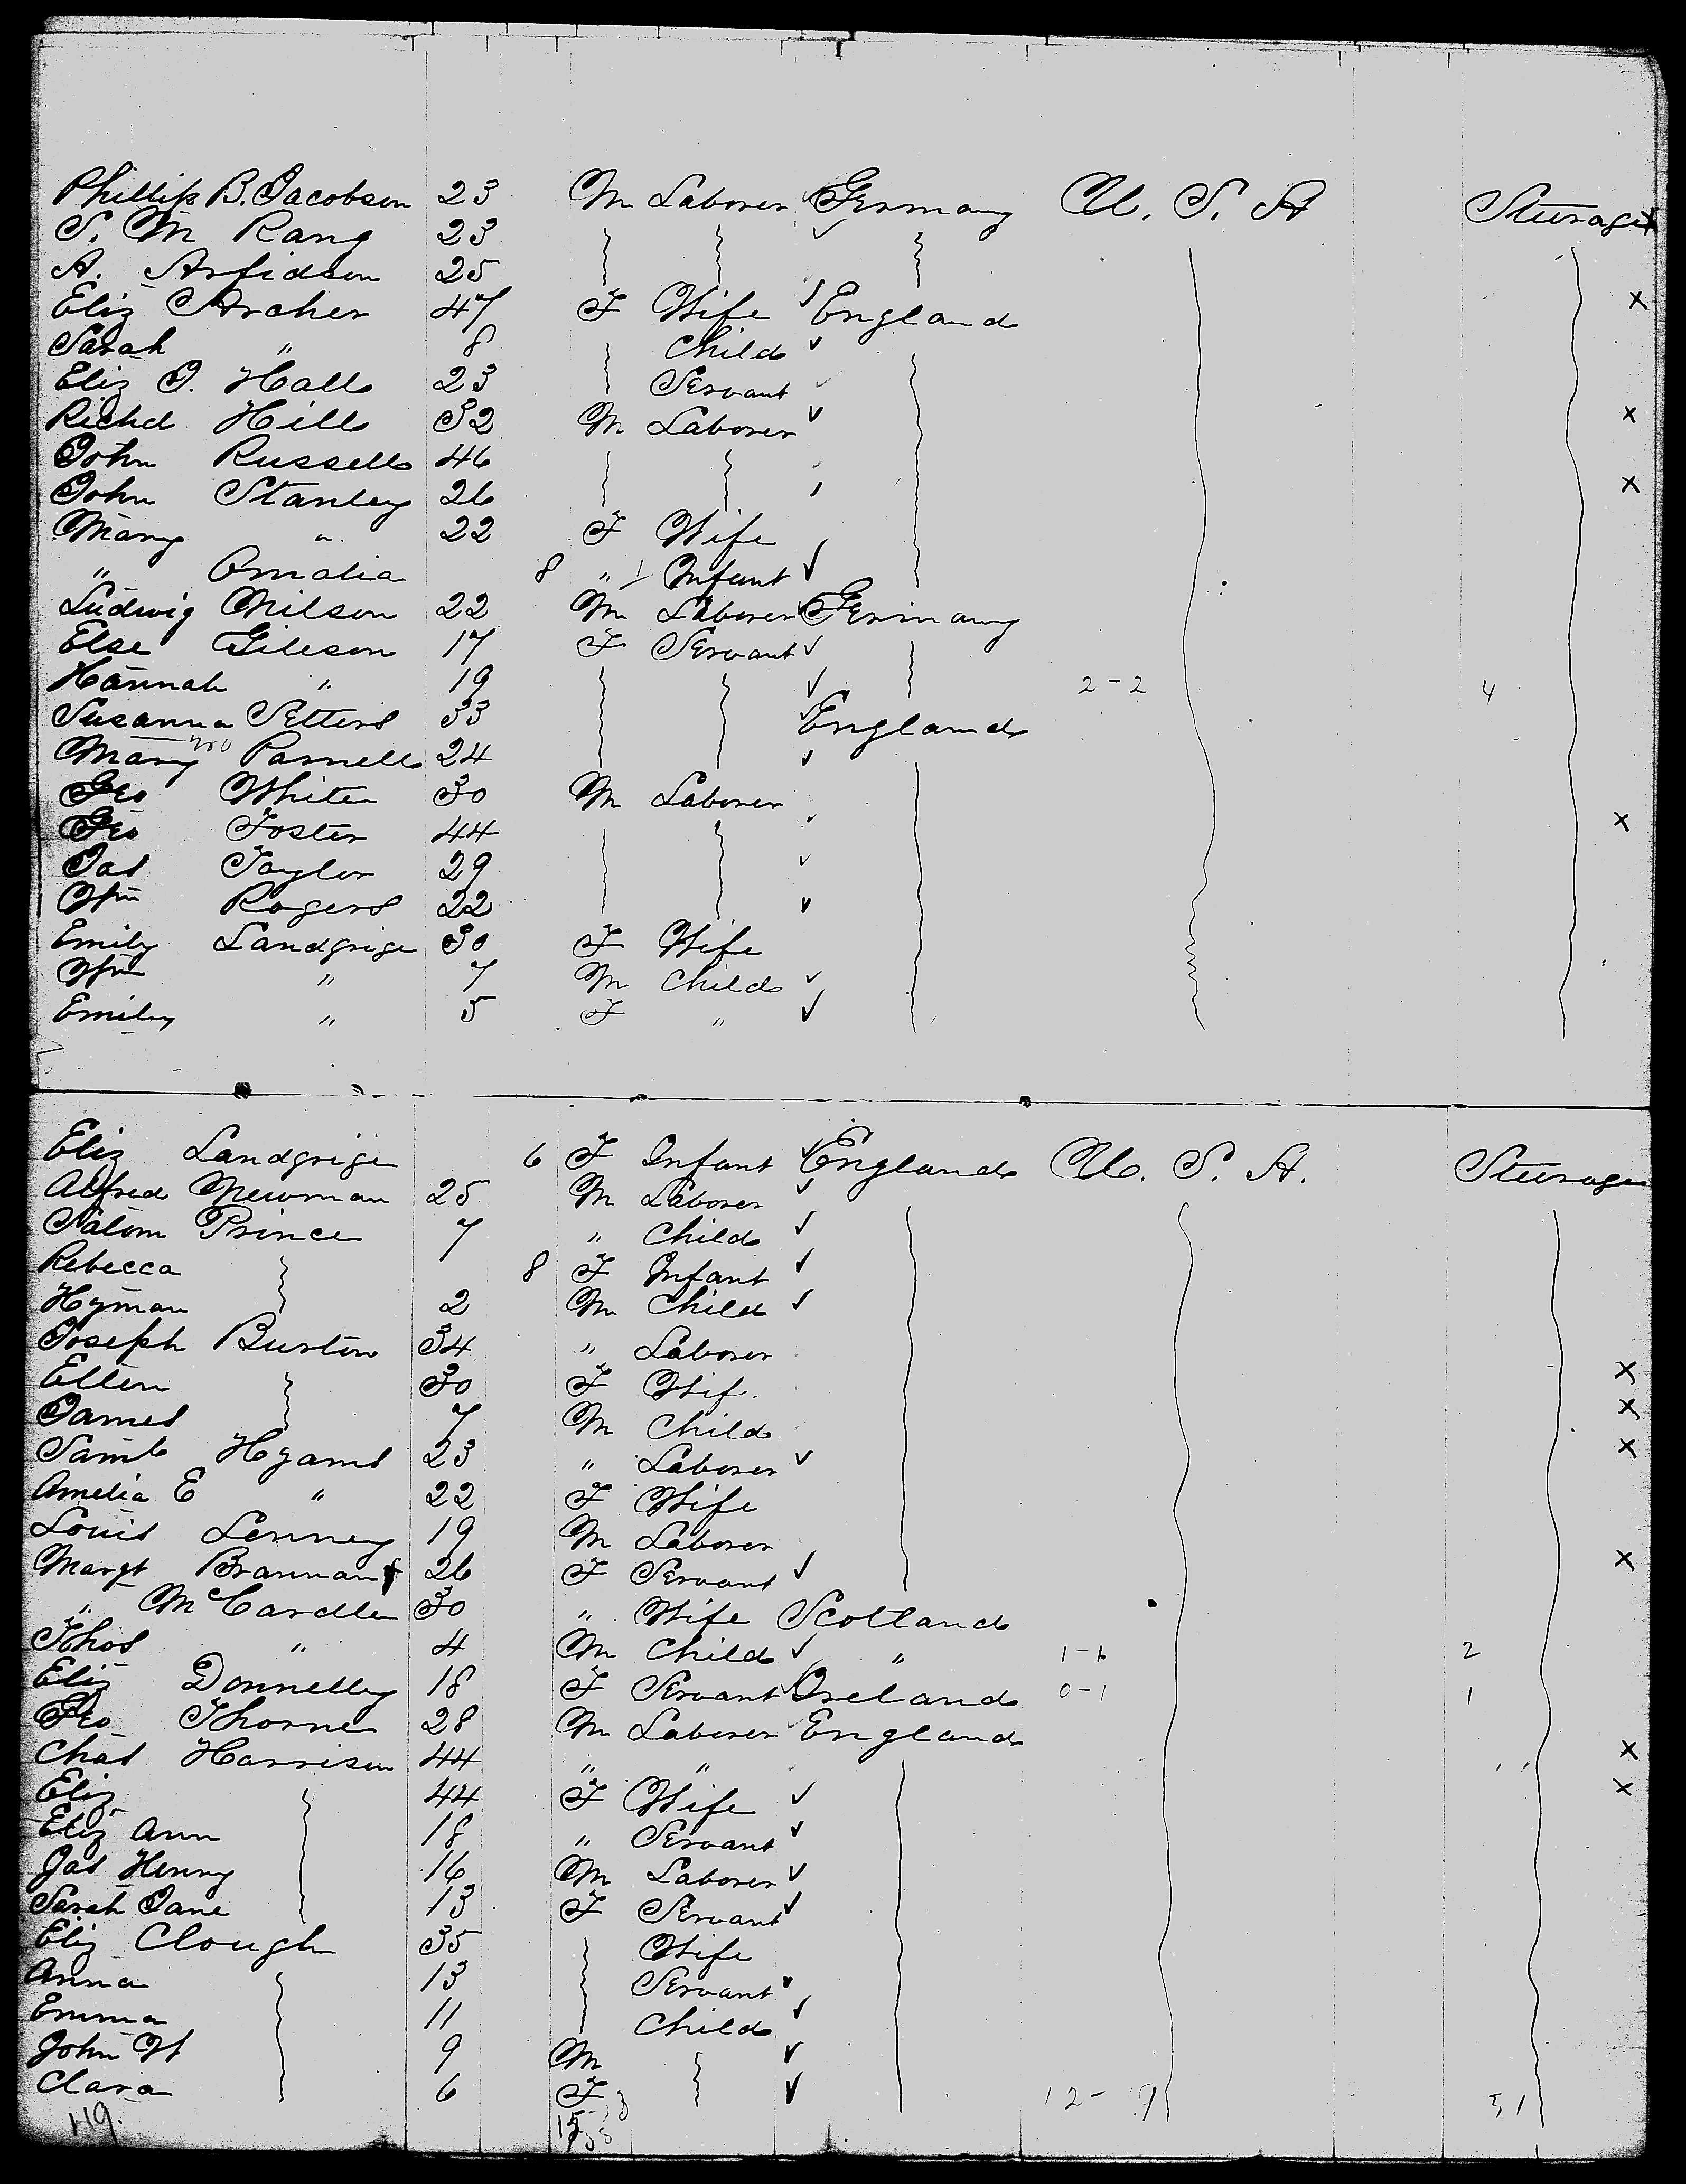 Phillip B. Jacobson 23 M Laborer Germany U. S. A Steerage x
S. M Rang 23
A. Arfidson 25
Eliz Archer 47 F Wife England x
Sarah " 8 Child
Eliz J. Hall 23 Servant
Richd Hill 32 M Laborer x
John Russell 46
John Stanley 26 x
Mary " 22 F Wife
" Amalia 8 " Infant
Ludwig Nilson 22 M Laborer Germany
Else Gileson 17 F Servant
Hannah " 19 2-2 4
Susanna Setters 33 England
Mary Parnell 24
Geo White 30 M Laborer
Geo Foster 44 x
Jas Taylor 29
Wm Rogers 22
Emily Landgrige 30 F Wife
Wm " 7 M Child
Emily " 5 F "
Eliz Landgrige 6 F Infant England U. S. A. Steerage
Alfred Newman 25 M Laborer
Salom Prince 7 " Child
Rebecca 8 F Infant
Hyman 2 M Child
Joseph Burton 34 " Laborer
Ellen 30 F Wif. x
James 7 M Child x
Saml Hyams 23 " Laborer x
Amelia E " 22 F Wife
Louis Lenney 19 M Laborer
Margt Brannan 26 F Servant x
" McCardle 30 " Wife Scotland
Thos " 4 M Child " 1-1 2
Eliz Donnelly 18 F Servant Ireland 0-1 1
Geo Thorne 28 M Laborer England
Chas Harrison 44 " " x
Eliz 44 F Wife x
Eliz Ann 18 " Servant
Jas Henry 16 M Laborer
Sarah Jane 13 F Servant
Eliz Clough 35 Wife
Anna 13 Servant
Emma 11 Child
John W 9 M
Clara 6 F 12-19 31
119.